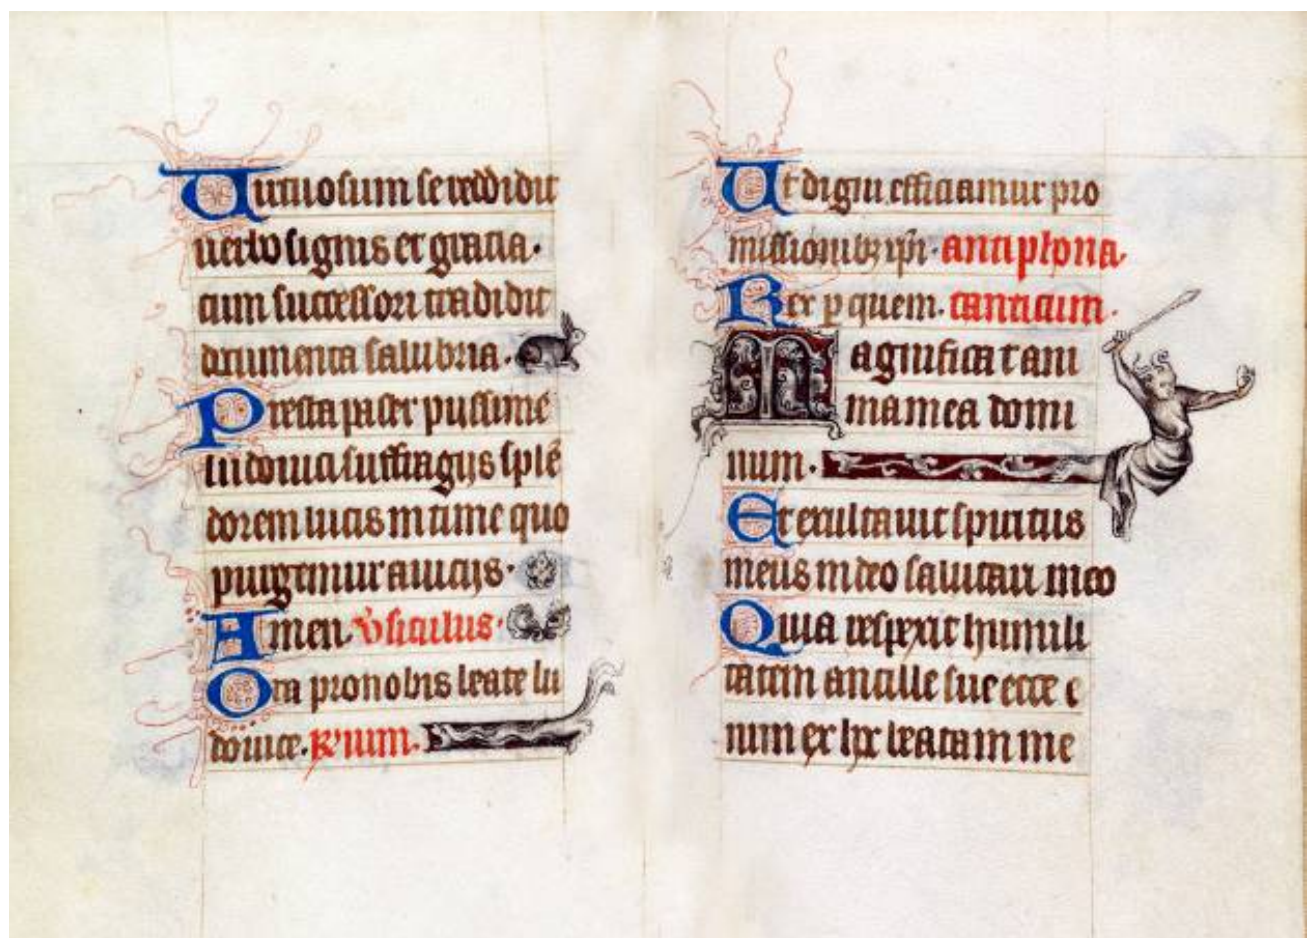 Virtuosum se reddidit
uerbo signis et gratia.
cum successori tradidit
documenta salubria.
Presta pater piissime
ludouici suffragijs splē
dorem lucis intime quo
purgemur a uicijs.
Amen. v̾siculus.
Ora pro nobis beate lu
douice. R̾um.
Ut digni efficiamur pro
missionibꝫ xp̄i. antiphona.
Rex ꝑ quem. canticum.
Magnificat ani
ma mea domi
num.
Et exultauit spiritus
meus in deo salutari meo
Quia respexit humili
tatem ancille sue ecce e
nim ex hoc beatam me